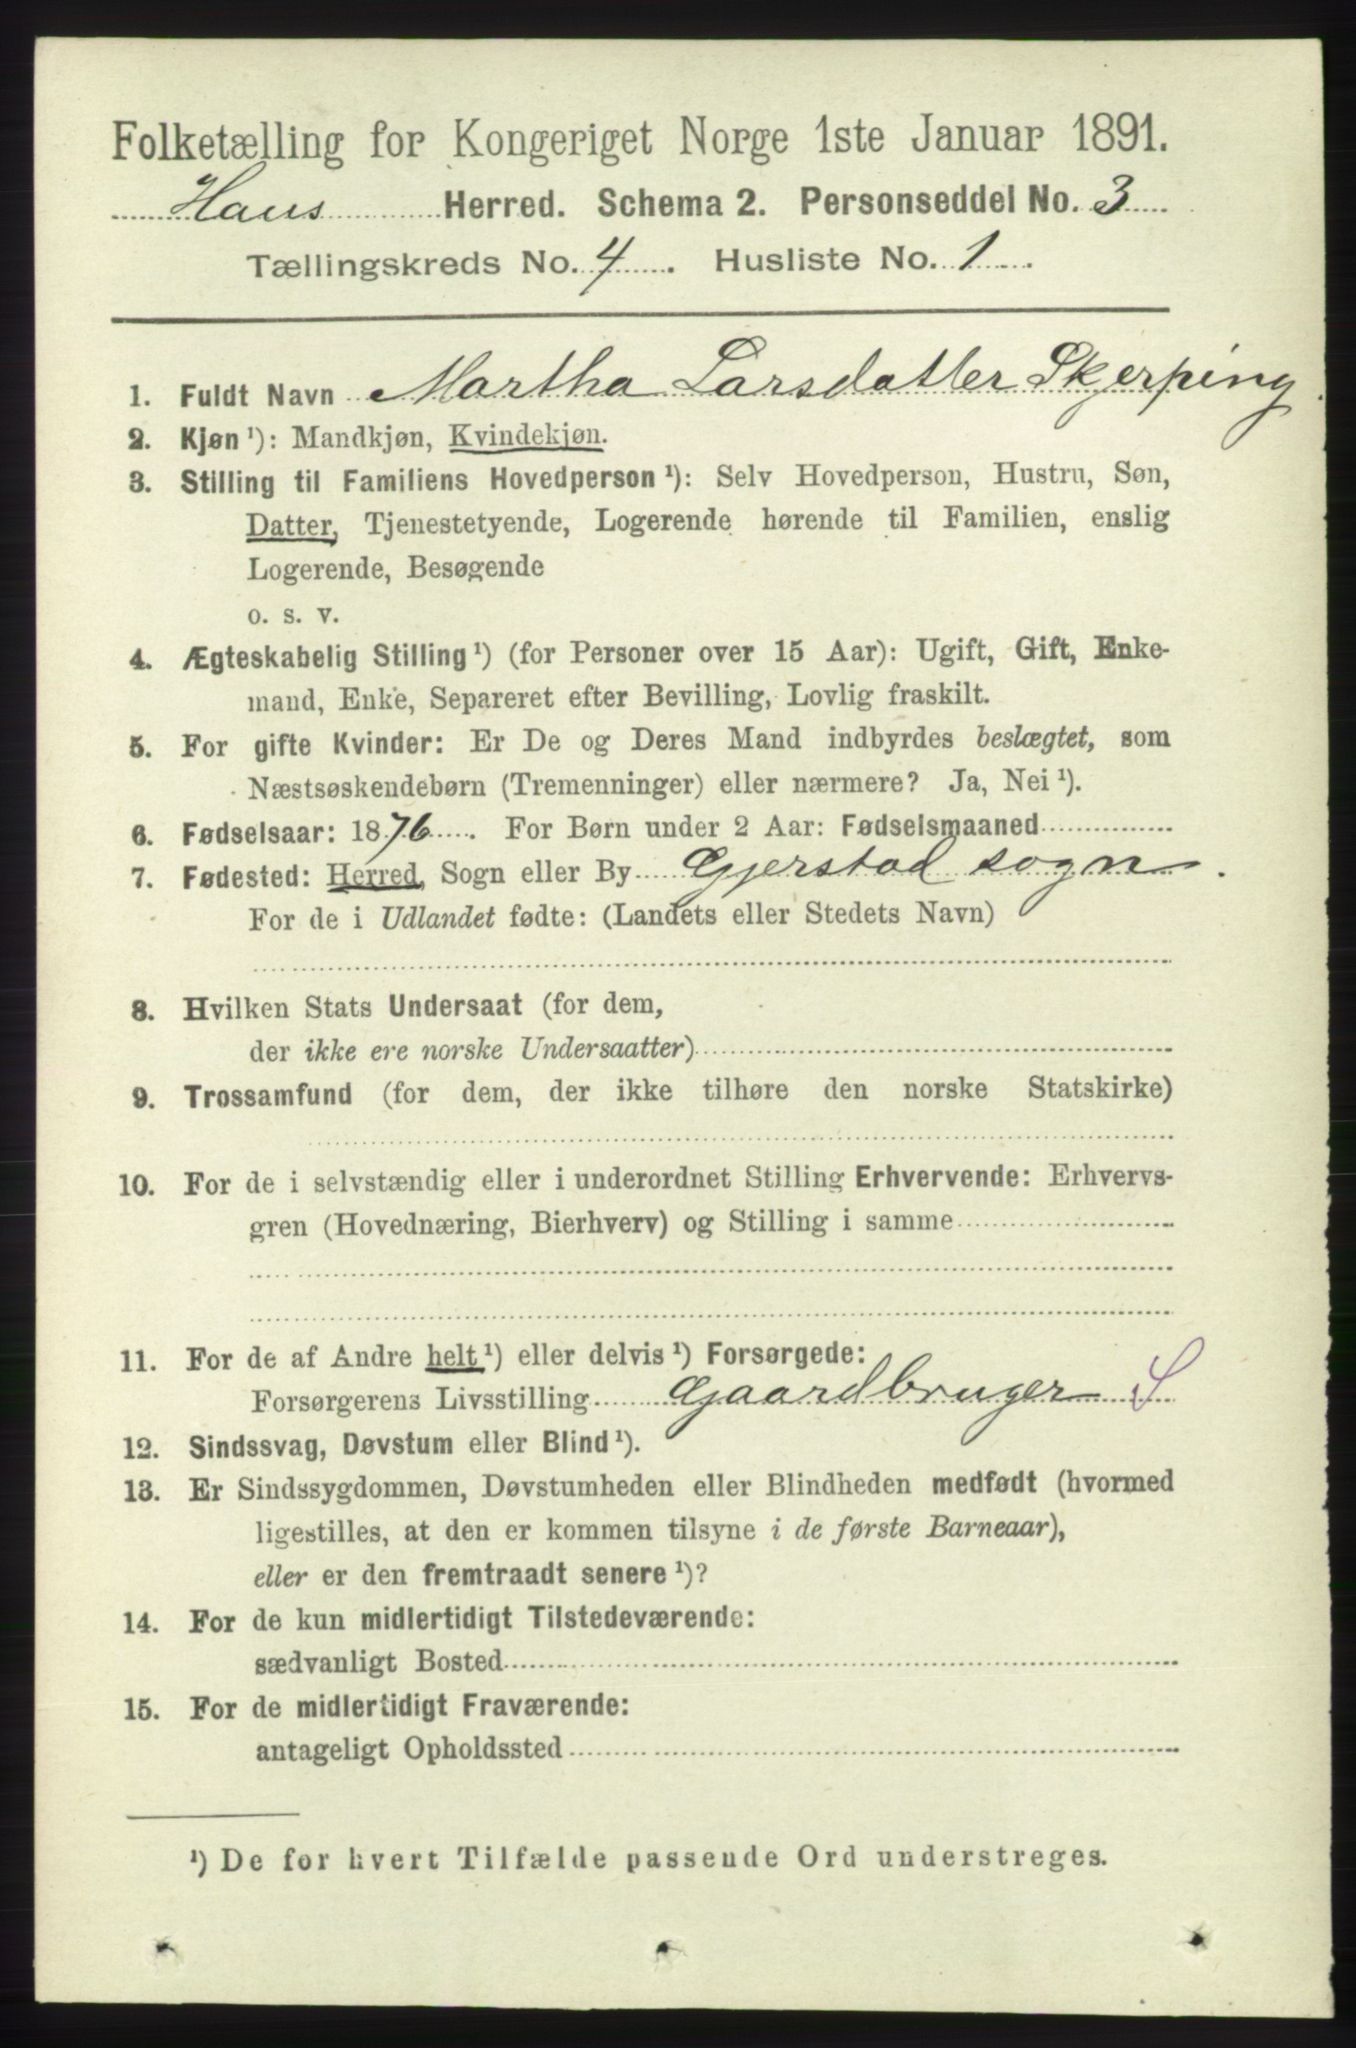 Folketælling for Kongeriget Norge 1ste Januar 1891.
Haus Herred. Schema 2. Personseddel No. 3
Tællingskreds No. 4. Husliste No. 1.
1. Fuldt Navn Martha Larsdatter Skerping
2. Kjøn ¹): Mandkjøn, Kvindekjøn.
3. Stilling til Familiens Hovedperson ¹): Selv Hovedperson, Hustru, Søn,
Datter, Tjenestetyende, Logerende hørende til Familien, enslig
Logerende, Besøgende
o. s. v.
4. Ægteskabelig Stilling ¹) (for Personer over 15 Aar): Ugift, Gift, Enke-
mand, Enke, Separeret efter Bevilling, Lovlig fraskilt.
5. For gifte Kvinder: Er De og Deres Mand indbyrdes beslægtet, som
Næstsøskendebørn (Tremenninger) eller nærmere? Ja, Nei ¹).
6. Fødselsaar: 1876. For Børn under 2 Aar: Fødselsmaaned
7. Fødested: Herred, Sogn eller By Gjerstad sogn.
For de i Udlandet fødte: (Landets eller Stedets Navn)
8. Hvilken Stats Undersaat (for dem,
der ikke ere norske Undersaatter)
9. Trossamfund (for dem, der ikke tilhøre den norske Statskirke)
10. For de i selvstændig eller i underordnet Stilling Erhvervende: Erhvervs-
gren (Hovednæring, Bierhverv) og Stilling i samme
11. For de af Andre helt ¹) eller delvis ¹) Forsørgede:
Forsørgerens Livsstilling Gaardbruger S
12. Sindssvag, Døvstum eller Blind ¹).
13. Er Sindssygdommen, Døvstumheden eller Blindheden medfødt (hvormed
ligestilles, at den er kommen tilsyne i de første Barneaar),
eller er den fremtraadt senere ¹)?
14. For de kun midlertidigt Tilstedeværende:
sædvanligt Bosted
15. For de midlertidigt Fraværende:
antageligt Opholdssted
¹) De for hvert Tilfælde passende Ord understreges.